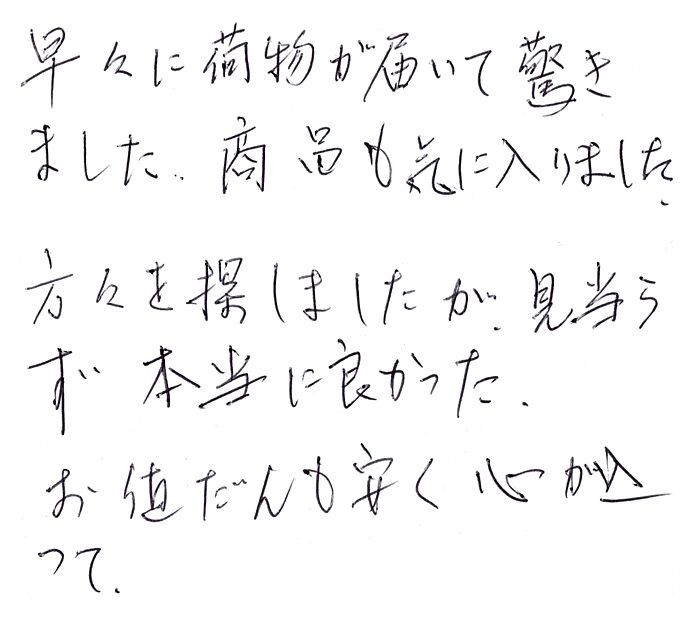 早々に荷物が届いて驚き
ました。商品も気に入りました。
方々を探しましたが、見当ら
ず本当に良かった。
お値だんも安く心が込
って。